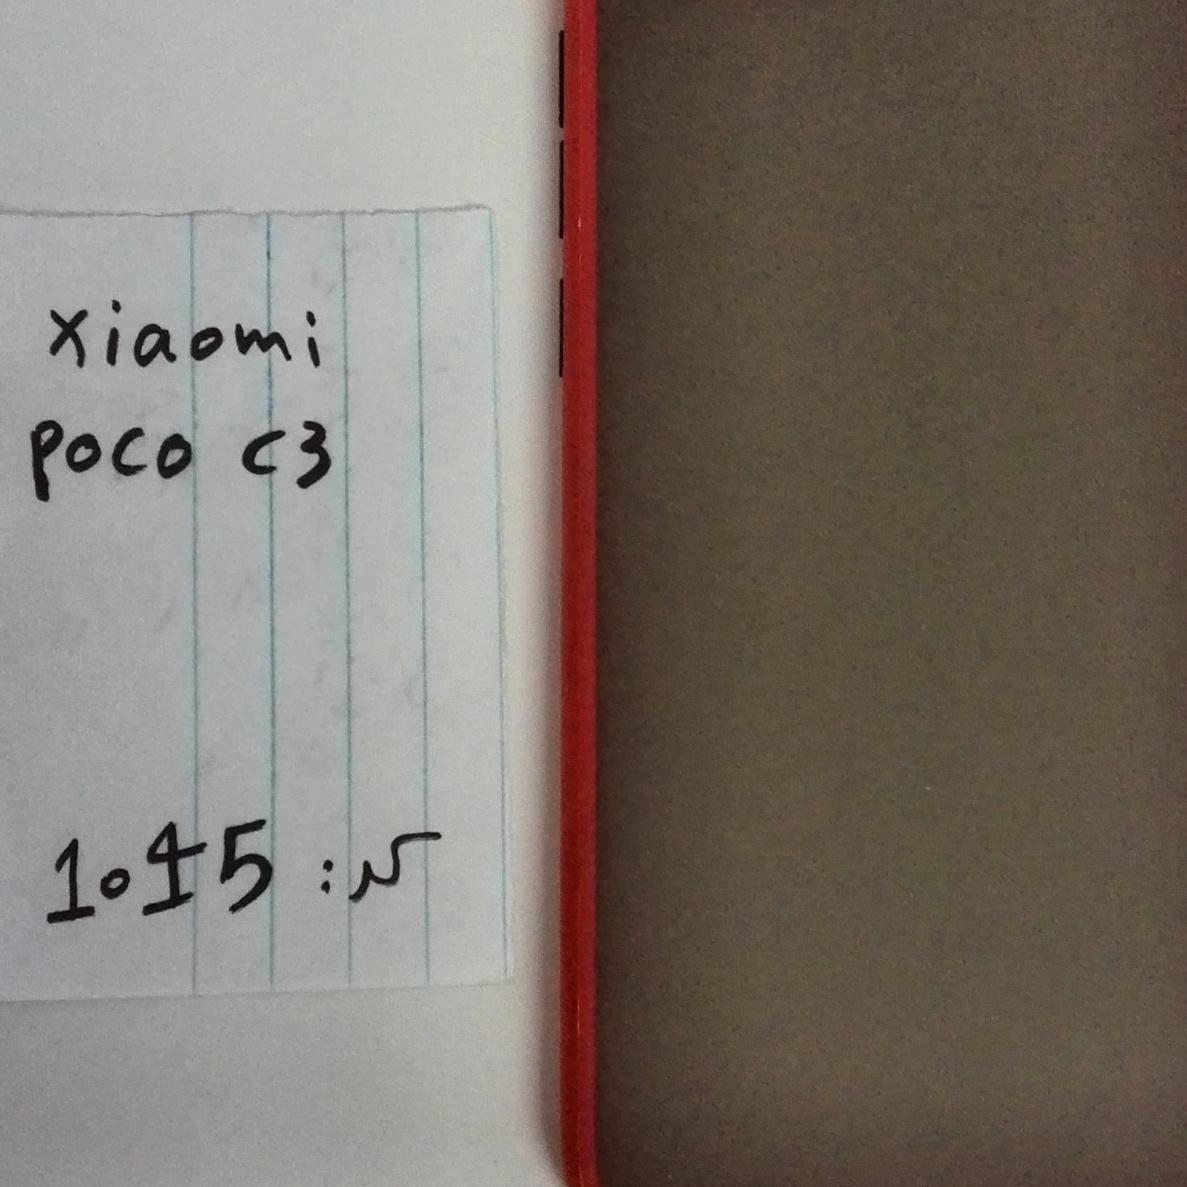 xiaomi
poco c3
1045 :